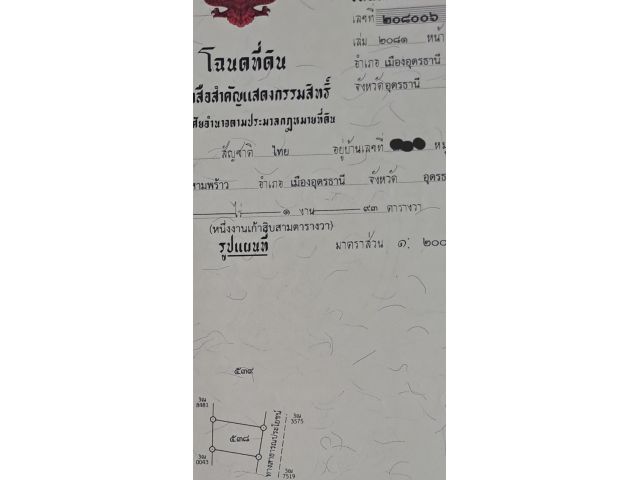 เลขที่ ๒๐๘๐๐๖
เล่ม ๒๐๘๑ หน้า
โฉนดที่ดิน
อำเภอ เมืองอุดรธานี
จังหวัด อุดรธานี
สือสำคัญแสดงกรรมสิทธิ์
ศัยอำนาจตามประมวลกฎหมายที่ดิน
สัญชาติ ไทย อยู่บ้านเลขที่ หมู
ามพร้าว อำเภอ เมืองอุดรธานี จังหวัด อุดรธ
ไร่ ๑ งาน ๙๓ ตารางวา
(หนึ่งงานเก้าสิบสามตารางวา)
รูปแผนที่ มาตราส่วน ๑: ๒๐๐
๕๓๙
3ฌ
8481
3ฌ
3575
๕๓๘
ทางสาธารณประโยชน์
3ฌ
0043
3ฌ
7519